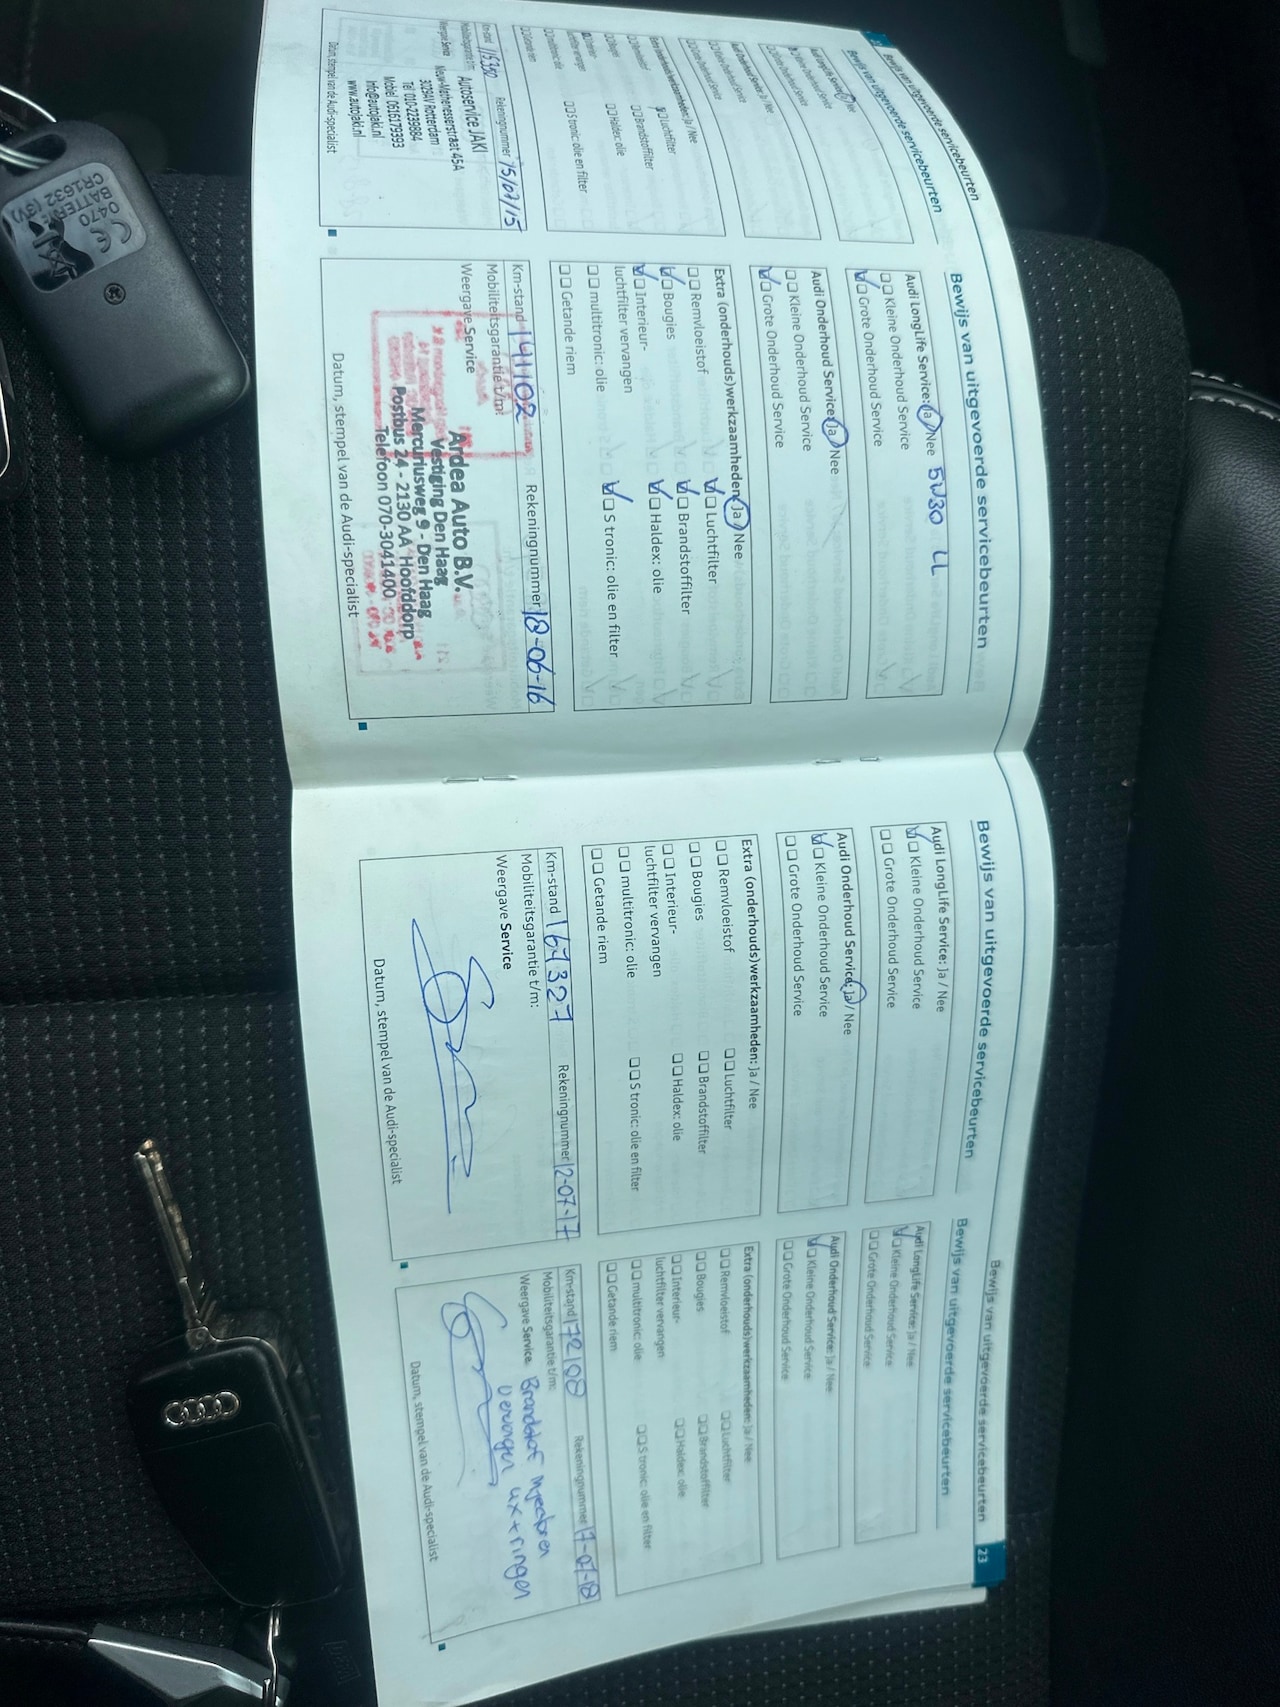 Bewijs van uitgevoerde servicebeurten
Bewijs van uitgevoerde servicebeurten
Audi LongLife Service: Ja / Nee
Kleine Onderhoud Service
Grote Onderhoud Service
Audi Onderhoud Service: Ja / Nee
Kleine Onderhoud Service
Grote Onderhoud Service
Extra (onderhouds)werkzaamheden: Ja / Nee
Remvloeistof
Luchtfilter
Bougies
Brandstoffilter
Interieur-
luchtfilter vervangen
Haldex: olie
multitronic: olie
S tronic: olie en filter
Getande riem
Km-stand 115390 Rekeningnummer 15/07/15
Mobiliteitsgarantie t/m: Autoservice JAKI
Weergave Service Nieuw-Mathenesserstraat 45A
3029AV Rotterdam
Tel 010-2229884
Mobiel 0616179393
info@autojaki.nl
www.autojaki.nl
Datum, stempel van de Audi-specialist
Bewijs van uitgevoerde servicebeurten
Audi LongLife Service: Ja / Nee 5W30 LL
Kleine Onderhoud Service
Grote Onderhoud Service
Audi Onderhoud Service: Ja / Nee
Kleine Onderhoud Service
Grote Onderhoud Service
Extra (onderhouds)werkzaamheden: Ja / Nee
Remvloeistof
Luchtfilter
Bougies
Brandstoffilter
Interieur-
luchtfilter vervangen
Haldex: olie
multitronic: olie
S tronic: olie en filter
Getande riem
Km-stand 141102 Rekeningnummer 18-06-16
Mobiliteitsgarantie t/m:
Weergave Service
Ardea Auto B.V.
Vestiging Den Haag
Mercuriusweg 9 - Den Haag
Postbus 24 - 2130 AA Hoofddorp
Telefoon 070-3041400
Datum, stempel van de Audi-specialist
Bewijs van uitgevoerde servicebeurten
Audi LongLife Service: Ja / Nee
Kleine Onderhoud Service
Grote Onderhoud Service
Audi Onderhoud Service: Ja / Nee
Kleine Onderhoud Service
Grote Onderhoud Service
Extra (onderhouds)werkzaamheden: Ja / Nee
Remvloeistof
Luchtfilter
Bougies
Brandstoffilter
Interieur-
luchtfilter vervangen
Haldex: olie
multitronic: olie
S tronic: olie en filter
Getande riem
Km-stand 167327 Rekeningnummer 12-07-17
Mobiliteitsgarantie t/m:
Weergave Service
Datum, stempel van de Audi-specialist
Bewijs van uitgevoerde servicebeurten
Bewijs van uitgevoerde servicebeurten
23
Audi LongLife Service: Ja / Nee
Kleine Onderhoud Service
Grote Onderhoud Service
Audi Onderhoud Service: Ja / Nee
Kleine Onderhoud Service
Grote Onderhoud Service
Extra (onderhouds)werkzaamheden: Ja / Nee
Remvloeistof
Luchtfilter
Bougies
Brandstoffilter
Interieur-
luchtfilter vervangen
Haldex: olie
multitronic: olie
S tronic: olie en filter
Getande riem
Km-stand 172108 Rekeningnummer 17-07-18
Mobiliteitsgarantie t/m:
Weergave Service Brandstof injectoren
vervangen 4x + ringen
Datum, stempel van de Audi-specialist
CE 0470
BATTERY
CR1632 (3V)